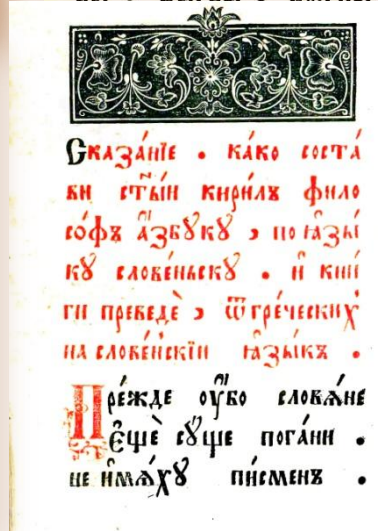 Сказа́нїе . ка́ко соста́
ви ст҃ы́и кири́лъ фило
со́фъ а҆́збꙋкꙋ , по ꙗ҆зы́
кꙋ слове́ньскꙋ . и҆ кни́
ги преведѐ , ѿ гре́ческихъ
на слове́нскїи ꙗ҆зы́къ .
Пре́жде оу҆́бо словѧ́не
є҆щѐ сꙋ́ще пога́ни .
не и҆мѧ́хꙋ пи́сменъ .